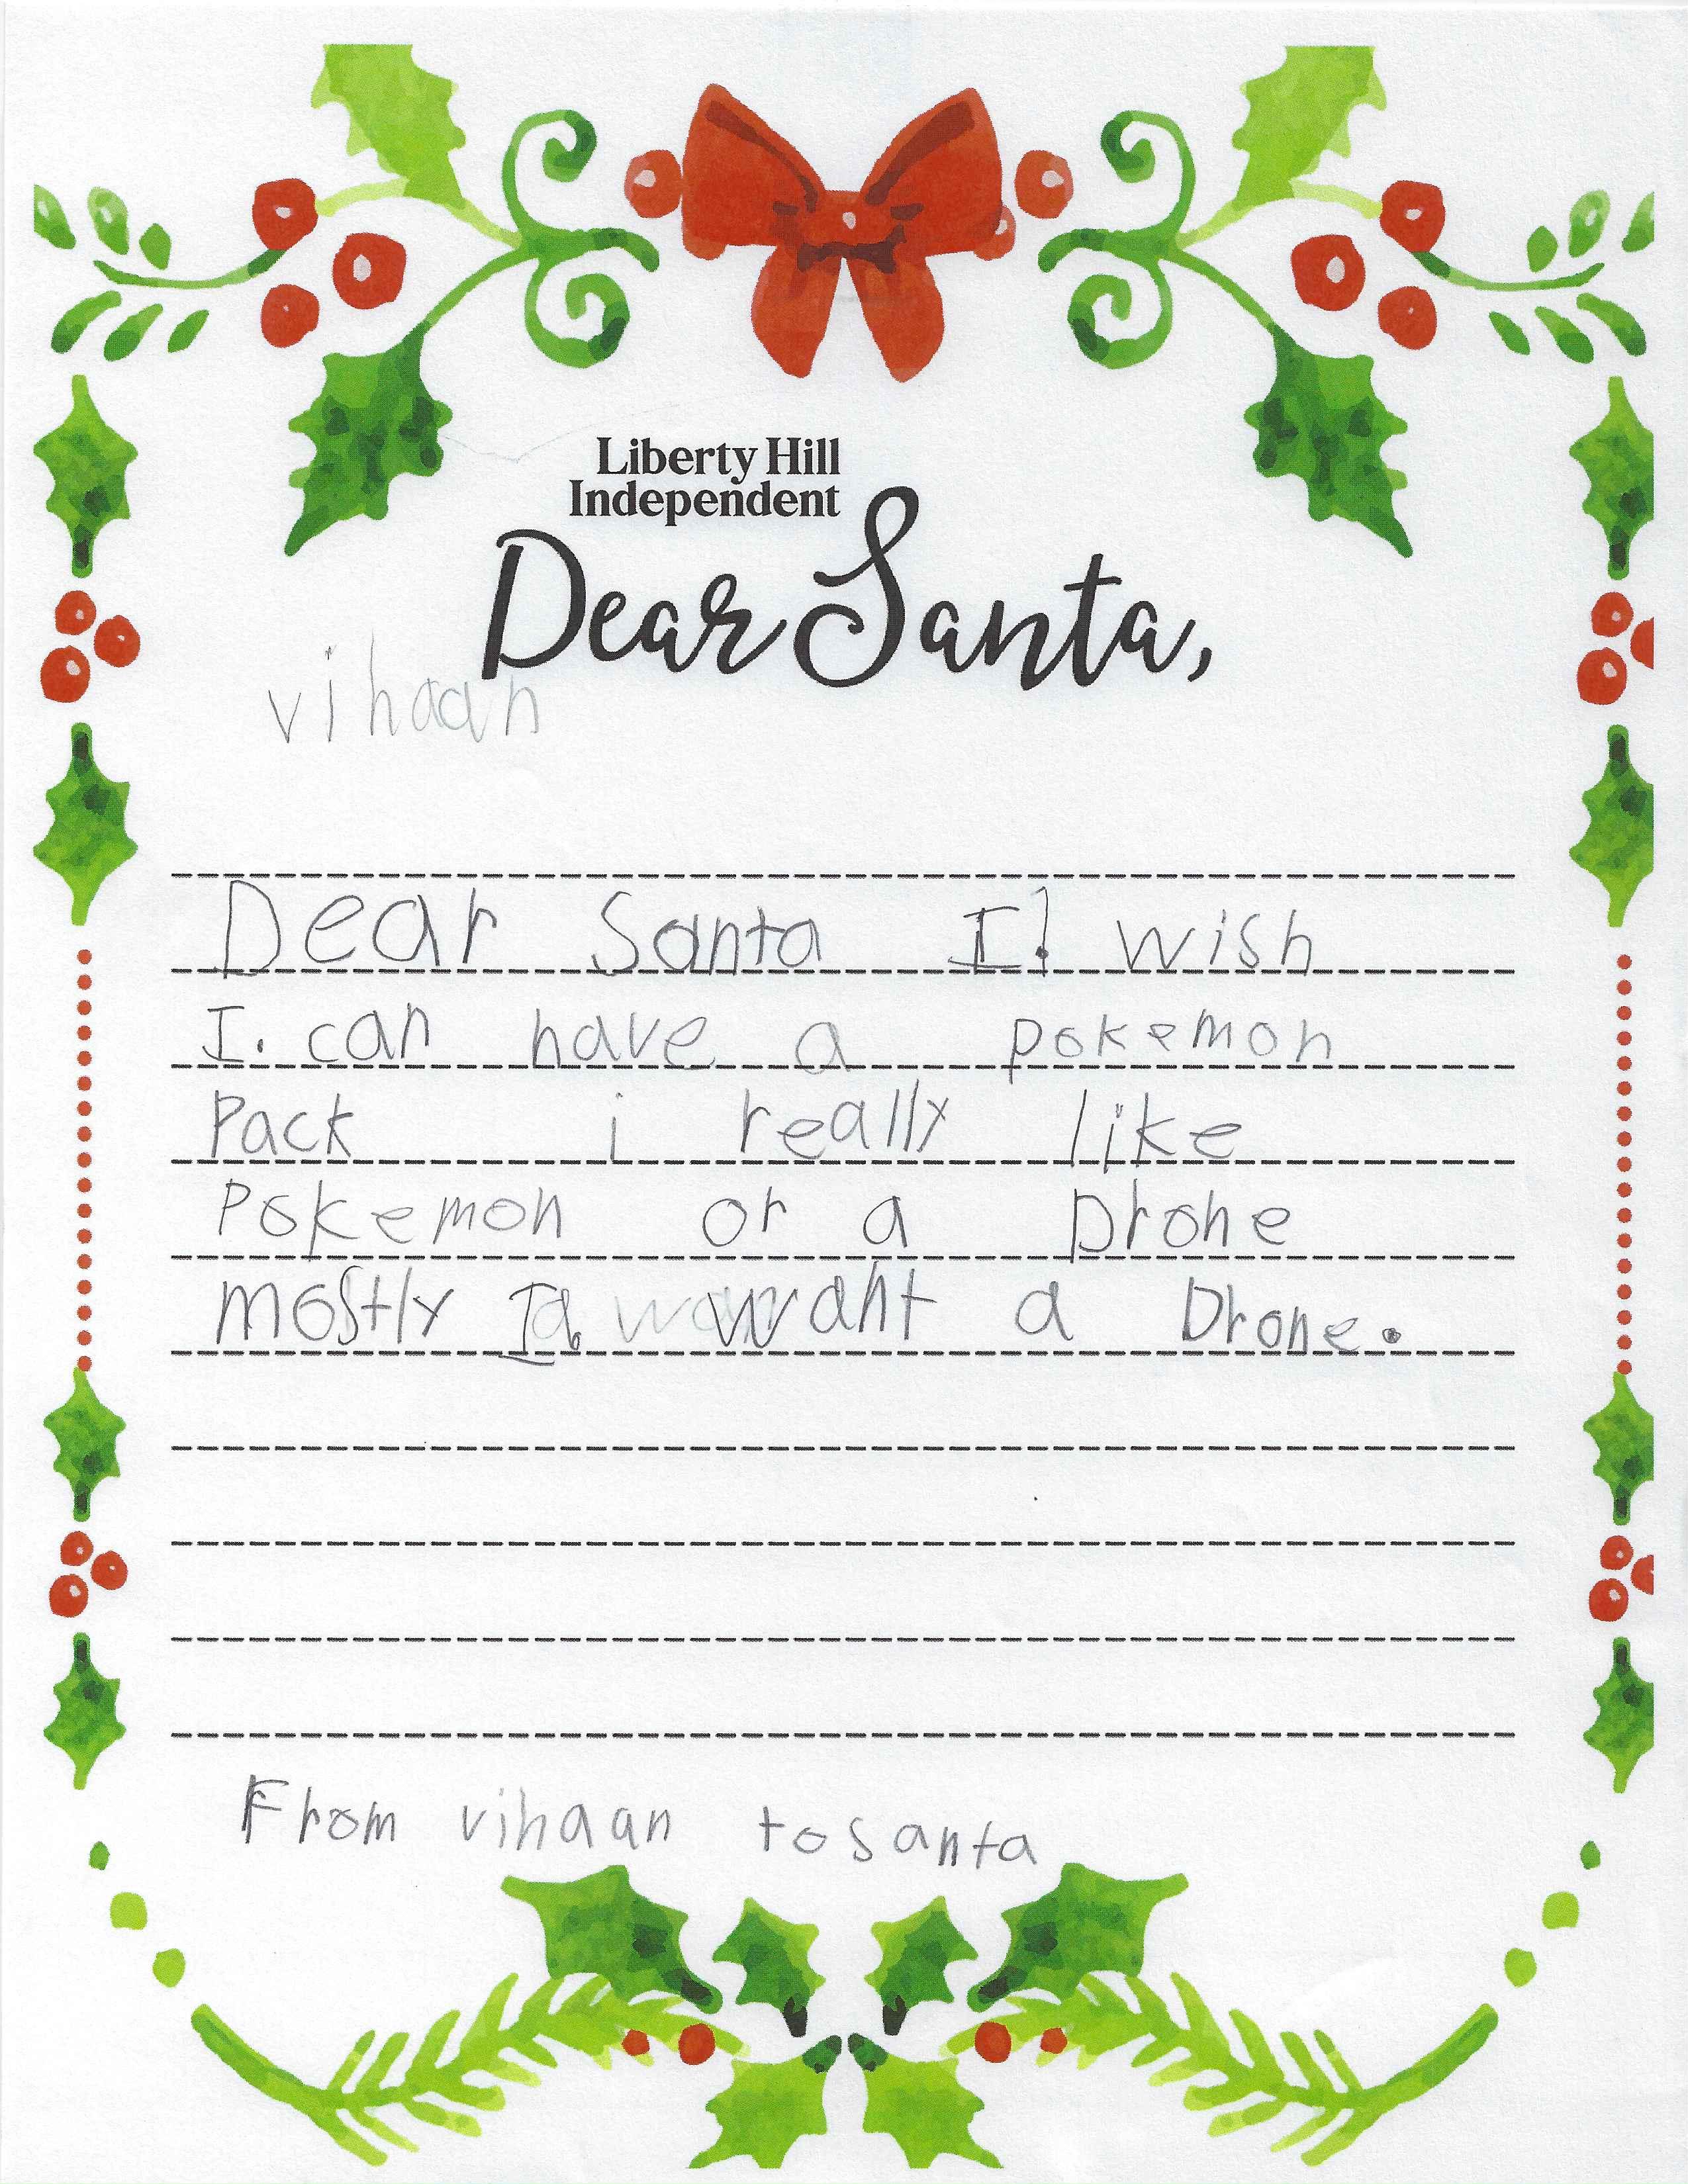 Liberty Hill
Independent
Dear Santa,
vihaan
Dear Santa I! wish
I. can have a pokemon
Pack i really like
Pokemon or a Drone
mostly I want a Drone.
From vihaan to santa